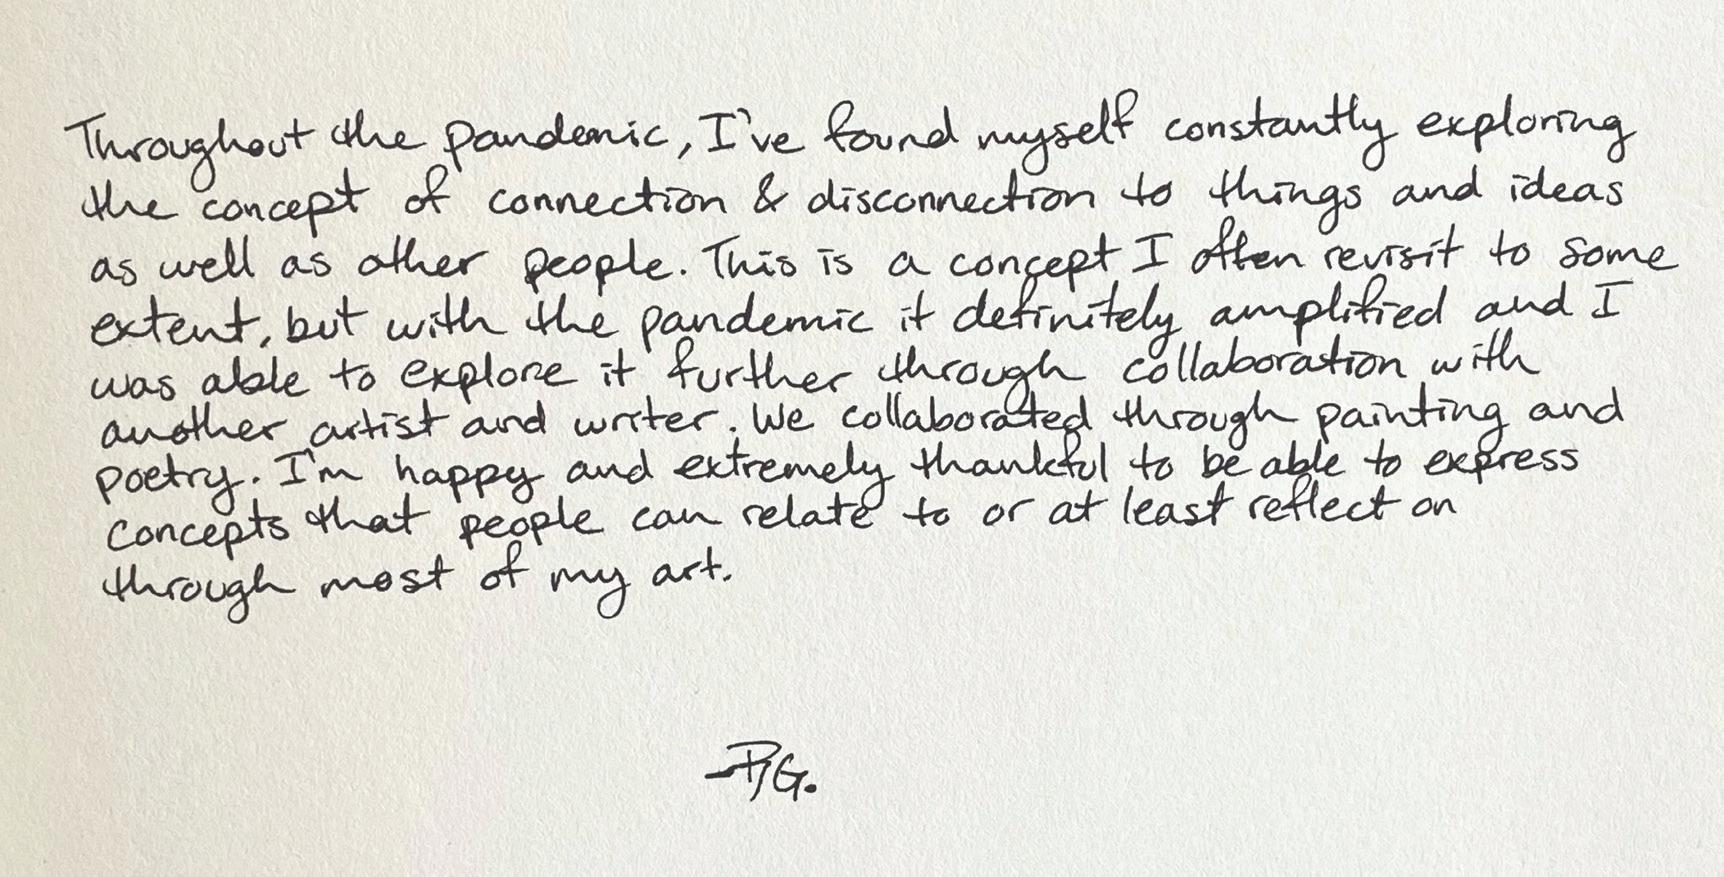 Throughout the pandemic, I've found myself constantly exploring
the concept of connection & disconnection to things and ideas
as well as other people. This is a concept I often revisit to some
extent, but with the pandemic it definitely amplified and I
was able to explore it further through collaboration with
another artist and writer. We collaborated through painting and
poetry. I'm happy and extremely thankful to be able to express
concepts that people can relate to or at least reflect on
through most of my art.